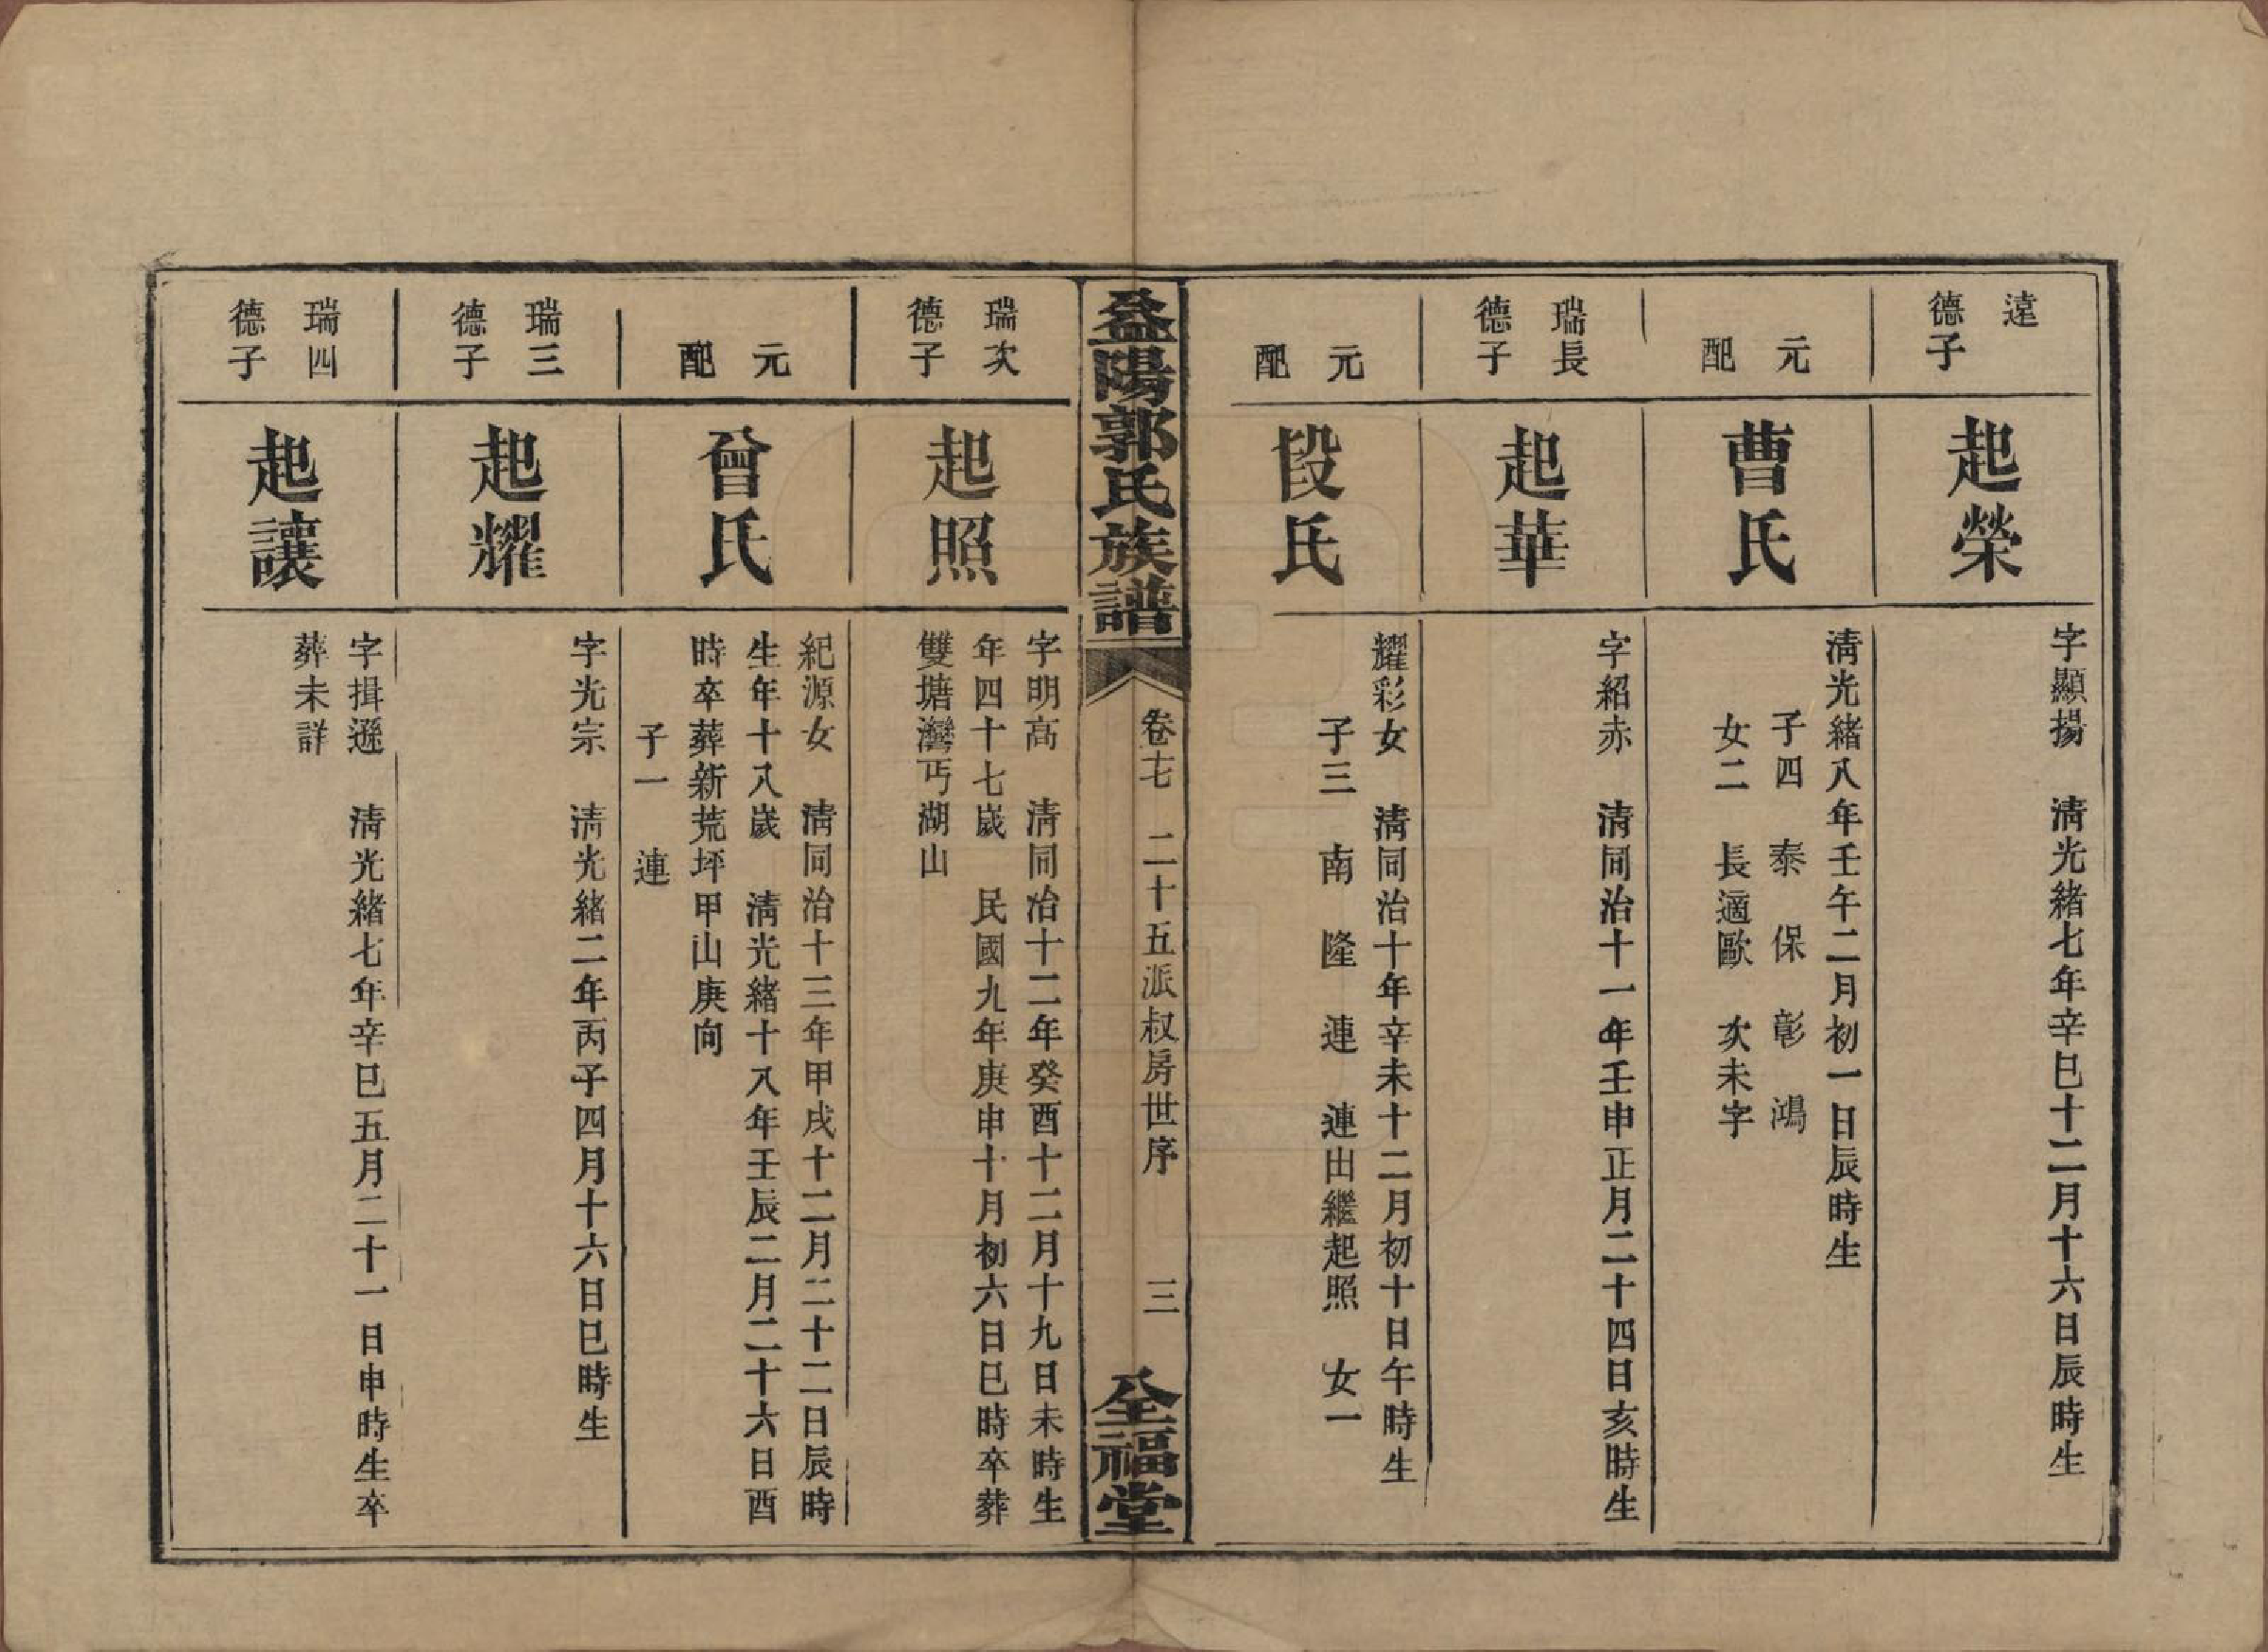 遠
德子
起榮
字顯揚　清光緒七年辛巳十二月十六日辰時生
元
配
曹氏
清光緒八年壬午二月初一日辰時生
子四　泰　保　彰　鴻
女二　長適歐　次未字
瑞長
德子
起華
字紹赤　清同治十一年壬申正月二十四日亥時生
元
配
段氏
耀彩女　清同治十年辛未十二月初十日午時生
子三　南　隆　連　連出繼起照　女一
益陽郭氏族譜
卷七　二十五派叔房世序　三
全福堂
瑞次
德子
起照
字明高　清同治十二年癸酉十二月十九日未時生
年四十七歲　民國九年庚申十月初六日巳時卒葬
雙塘灣丐湖山
元
配
曾氏
紀源女　清同治十三年甲戌十二月二十二日辰時
生年十八歲　清光緒十八年壬辰二月二十六日酉
時卒葬新荒坪甲山庚向
子一　連
瑞三
德子
起耀
字光宗　清光緒二年丙子四月十六日巳時生
瑞四
德子
起讓
字揖遜　清光緒七年辛巳五月二十一日申時生卒
葬未詳